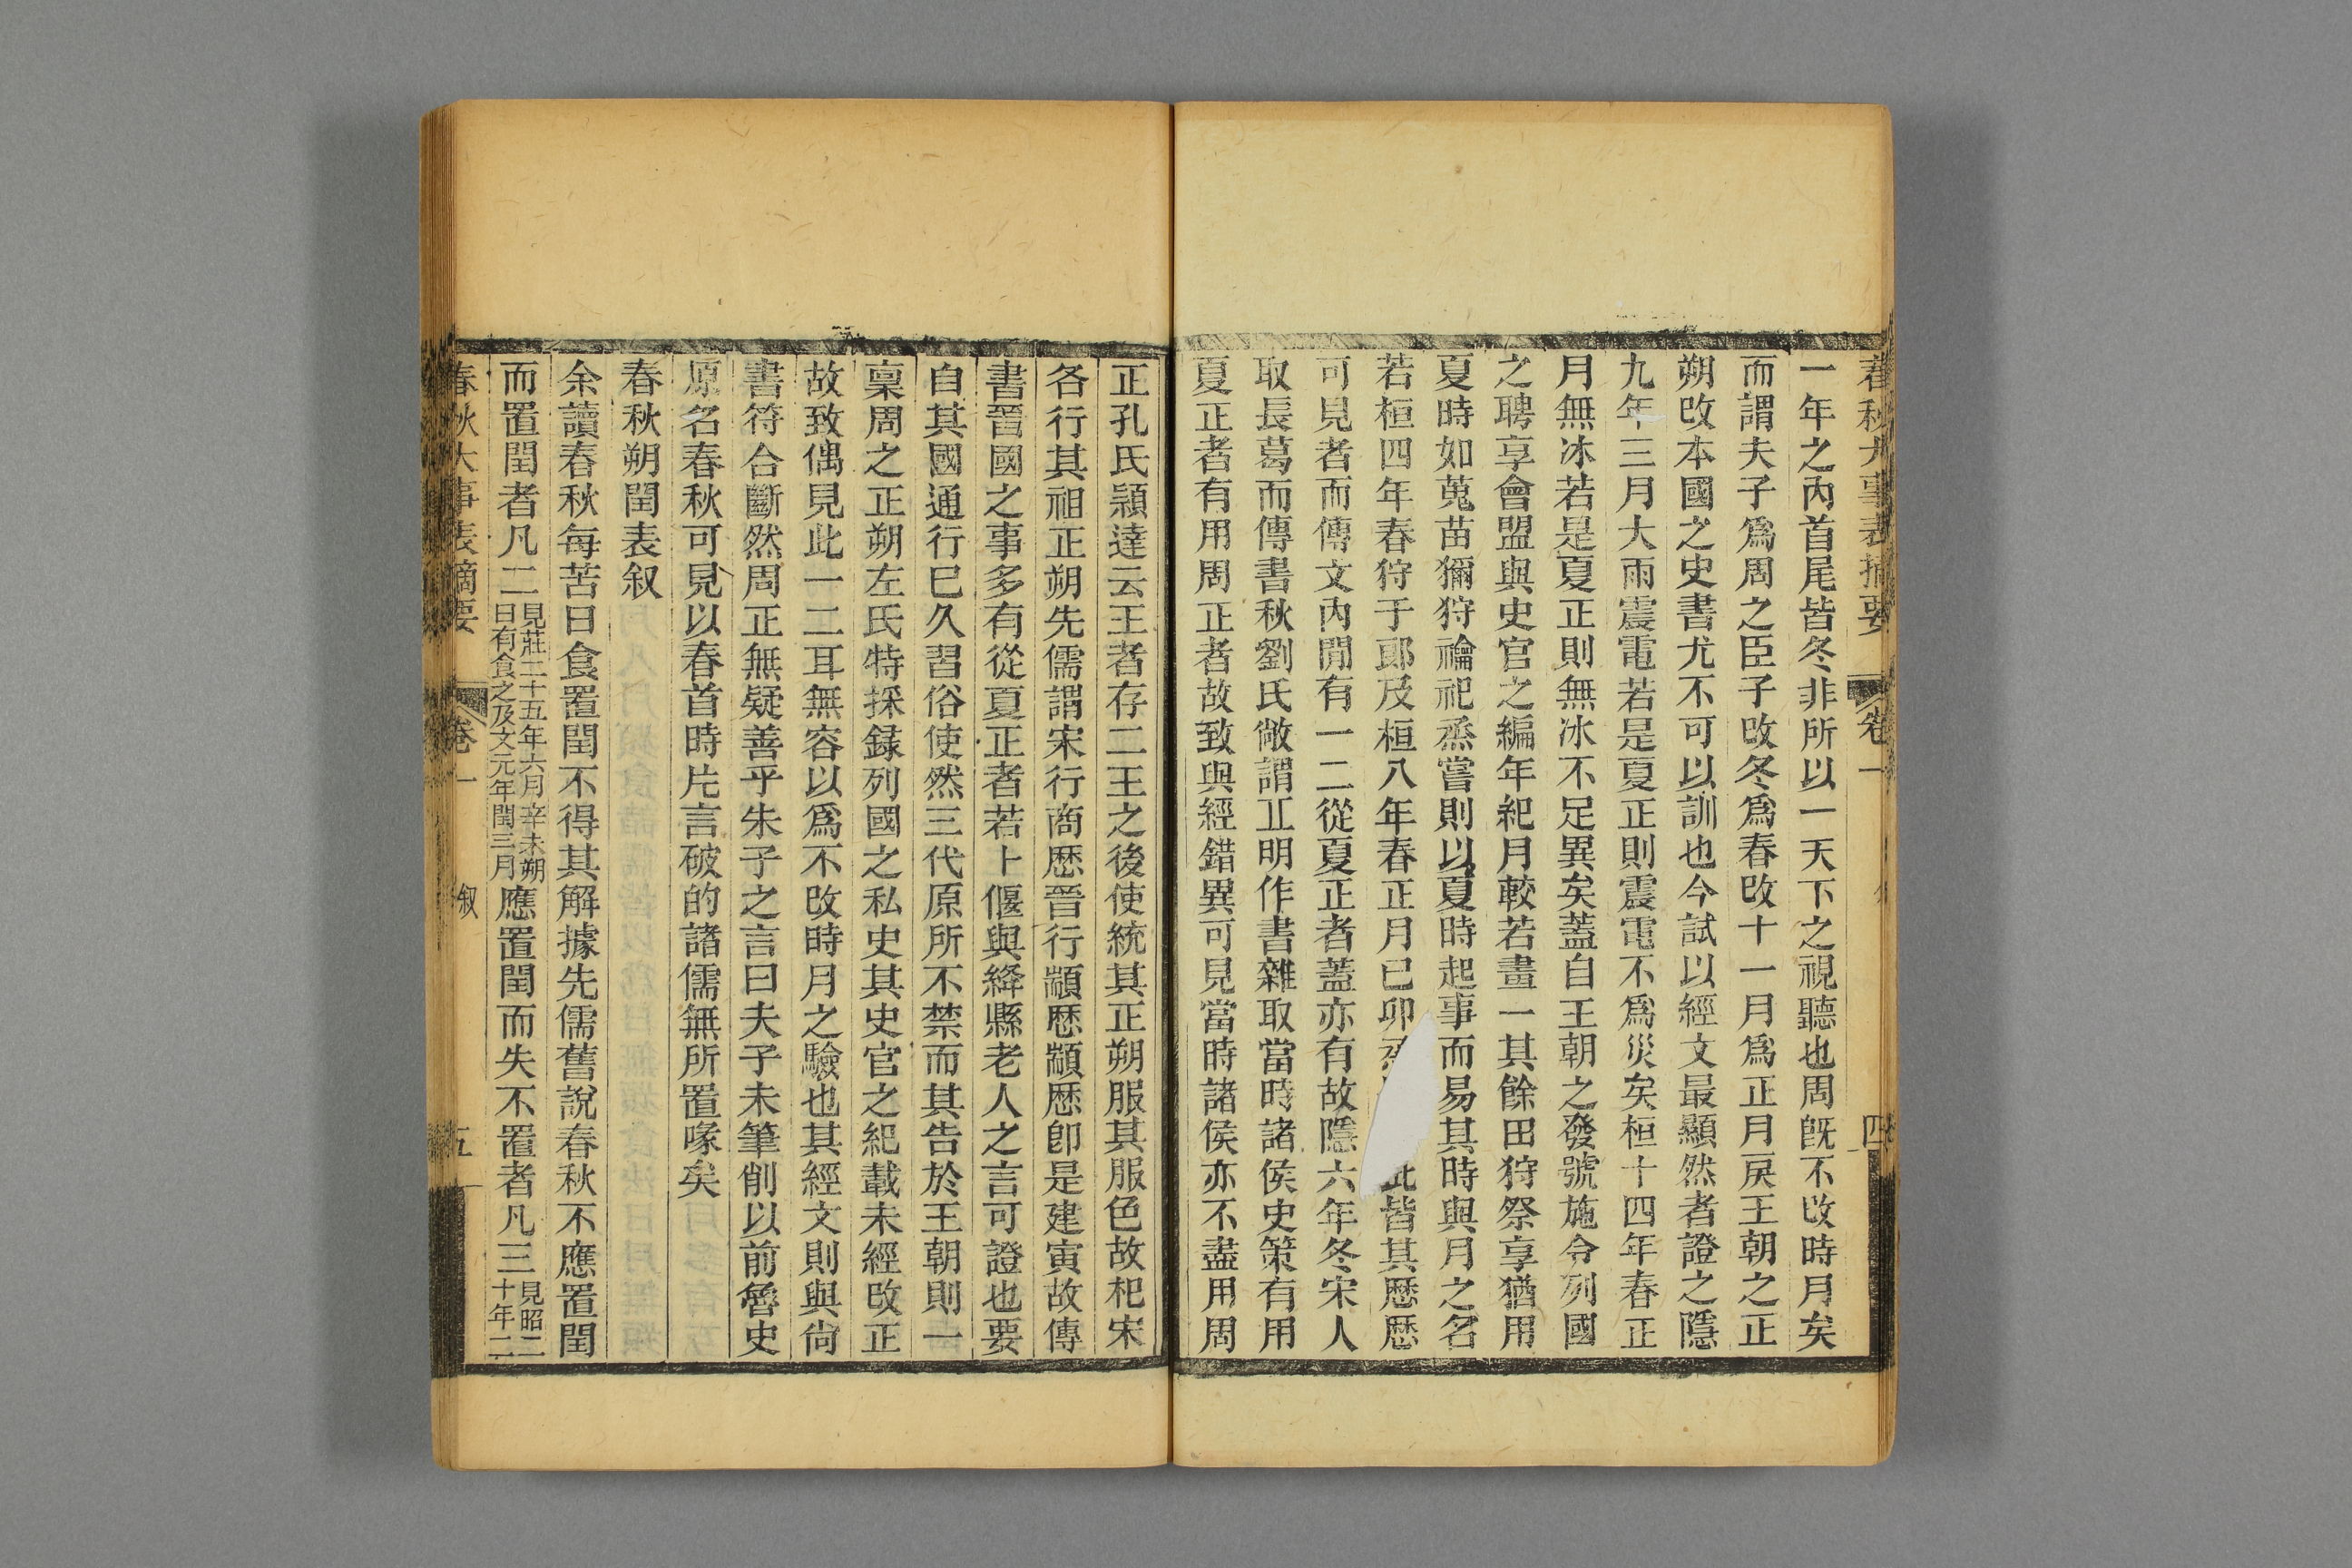 春秋大事表摘要 卷一 四
一年之內首尾皆冬非所以一天下之視聽也周旣不改時月矣
而謂夫子爲周之臣子改冬爲春改十一月爲正月戾王朝之正
朔改本國之史書尤不可以訓也今試以經文最顯然者證之隱
九年三月大雨震電若是夏正則震電不爲災矣桓十四年春正
月無冰若是夏正則無冰不足異矣蓋自王朝之發號施令列國
之聘享會盟與史官之編年紀月較若畫一其餘田狩祭享猶用
夏時如蒐苗獮狩禴祀烝嘗則以夏時起事而易其時與月之名
若桓四年春狩于郎及桓八年春正月已卯烝此皆其歷歷
可見者而傳文內閒有一二從夏正者蓋亦有故隱六年冬宋人
取長葛而傳書秋劉氏敞謂丘明作書雜取當時諸侯史策有用
夏正者有用周正者故致與經錯異可見當時諸侯亦不盡用周
正孔氏穎達云王者存二王之後使統其正朔服其服色故杞宋
各行其祖正朔先儒謂宋行商歷晉行顓歷顓歷卽是建寅故傳
書晉國之事多有從夏正者若卜偃與絳縣老人之言可證也要
自其國通行已久習俗使然三代原所不禁而其告於王朝則一
稟周之正朔左氏特採錄列國之私史其史官之紀載未經改正
故致偶見此一二耳無容以爲不改時月之驗也其經文則與尙
書符合斷然周正無疑善乎朱子之言曰夫子未筆削以前魯史
原名春秋可見以春首時片言破的諸儒無所置喙矣
春秋朔閏表叙
余讀春秋每苦日食置閏不得其解據先儒舊說春秋不應置閏
而置閏者凡二見莊二十五年六月辛未朔日有食之及文元年閏三月應置閏而失不置者凡三見昭二十年二
春秋大事表摘要 卷一 叙 五